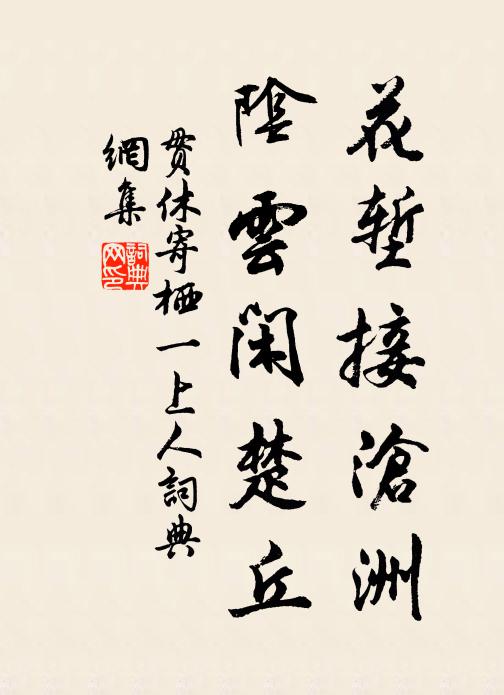 花塹接滄洲
陰雲閑楚丘
貫休寄栖一上人詞典
網集
詞典
网印